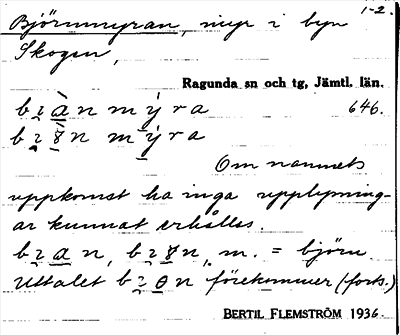 Björnmyran, myr i byn 1-2.
Skogen,
Ragunda sn och tg, Jämtl. län.
646.
Om namnets
uppkomst ha inga upplysning-
ar kunnat erhålles.
m. = björn.
Uttalet förekommer (forts.)
BERTIL FLEMSTRÖM 1936.